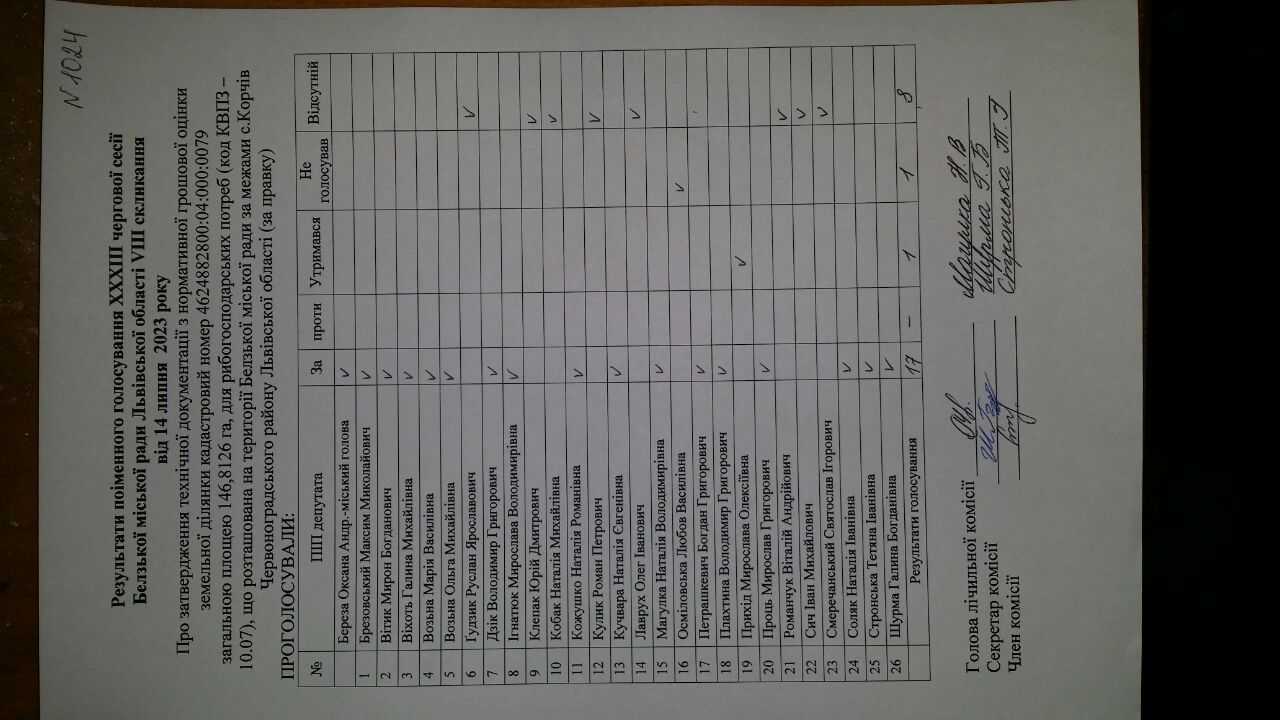 N 1024
Результати поіменного голосування XXXIII чергової сесії
Белзької міської ради Львівської області VIII скликання
від 14 липня 2023 року
Про затвердження технічної документації з нормативної грошової оцінки
земельної ділянки кадастровий номер 4624882800:04:000:0079
загальною площею 146,8126 га, для рибогосподарських потреб (код КВПЗ –
10.07), що розташована на території Белзької міської ради за межами с.Корчів
Червоноградського району Львівської області (за правку)
ПРОГОЛОСУВАЛИ:
№ ПІП депутата За проти Утримався Не голосував Відсутній
Береза Оксана Андр.-міський голова ✓
1 Брезовський Максим Миколайович ✓
2 Вітик Мирон Богданович ✓
3 Віхоть Галина Михайлівна ✓
4 Возьна Марія Василівна ✓
5 Возьна Ольга Михайлівна ✓
6 Гудзик Руслан Ярославович ✓
7 Дзік Володимир Григорович ✓
8 Ігнатюк Мирослава Володимирівна ✓
9 Клепак Юрій Дмитрович ✓
10 Кобак Наталія Михайлівна ✓
11 Кожушко Наталія Романівна ✓
12 Кулик Роман Петрович ✓
13 Кучвара Наталія Євгенівна ✓
14 Лаврух Олег Іванович ✓
15 Магулка Наталія Володимирівна ✓
16 Осміловська Любов Василівна ✓
17 Петрашкевич Богдан Григорович ✓
18 Плахтина Володимир Григорович ✓
19 Прихід Мирослава Олексіївна ✓
20 Проць Мирослав Григорович ✓
21 Романчук Віталій Андрійович ✓
22 Сич Іван Михайлович ✓
23 Смеречанський Святослав Ігорович ✓
24 Соляк Наталія Іванівна ✓
25 Стронська Тетяна Іванівна ✓
26 Шурма Галина Богданівна ✓
Результати голосування 17 – 1 1 8
Голова лічильної комісії Магулка Н.В
Секретар комісії Шурма Г.Б
Член комісії Стронська Т.І